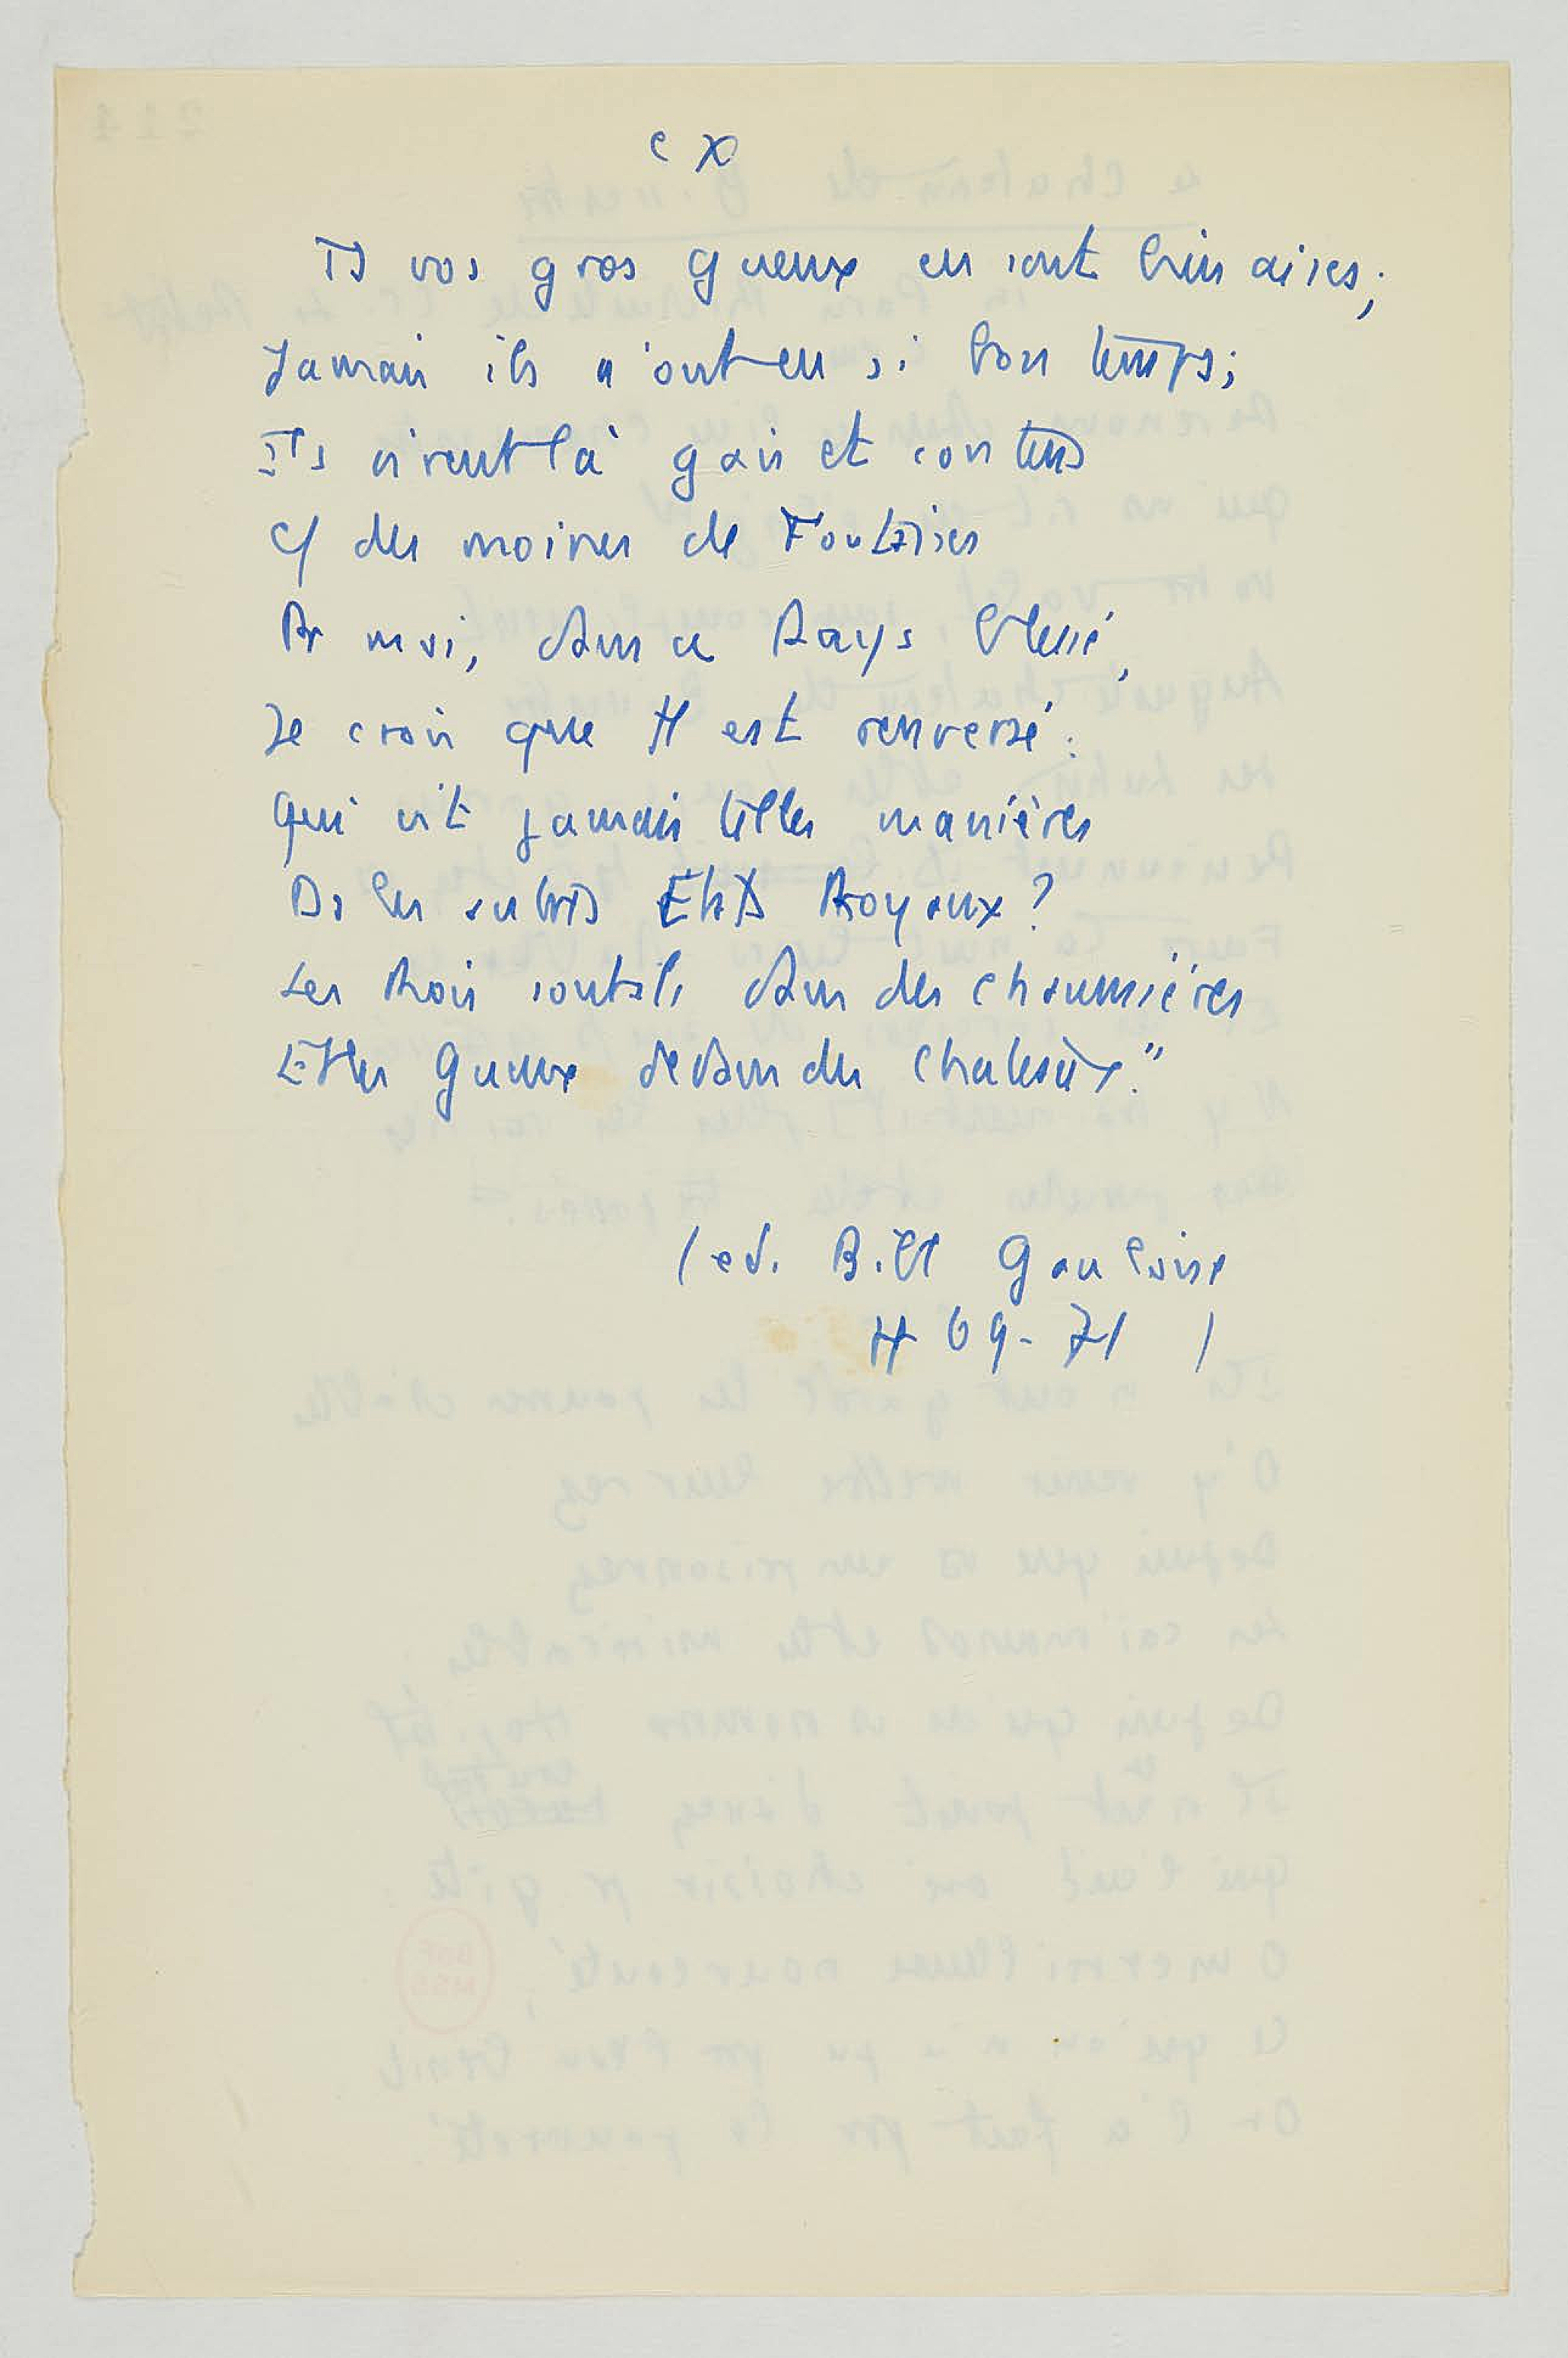 CX
Ts vos gros gueux en sont bien aises;
Jamais ils n'ont eu si bon temps;
Ils vivent là gais et contents
c/ des moines de
Pr moi, dans ce Pays blessé,
Je crois que tt est renversé:
Qui vit jamais telles manières
Ds les autres Etats Royaux?
Les Rois sont-ils dans des chaumières
Et les gueux dedans des chateaux?"
(ed. Bibl Gauloise
69-71)